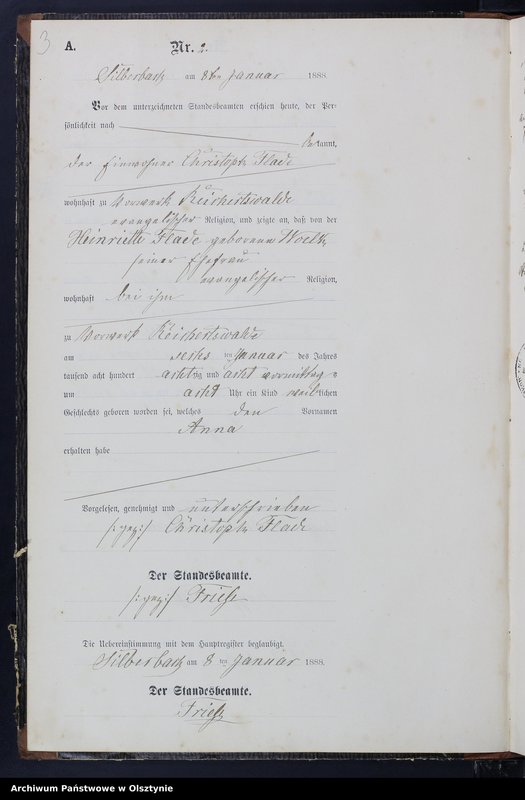 3
A.
Nr. 2.
Silberbach am 8ten Januar 1888.
Vor dem unterzeichneten Standesbeamten erschien heute, der Per-
sönlichkeit nach
bekannt,
der Einwohner Christoph Flade
wohnhaft zu Vorwerk Reichertswalde
evangelischer Religion, und zeigte an, daß von der
Heinriette Flade geborenen Woelk
seiner Ehefrau
evangelischer Religion,
wohnhaft bei ihm
zu Vorwerk Reichertswalde
am sechs ten Januar des Jahres
tausend acht hundert achtzig und acht vormittags
um acht Uhr ein Kind weiblichen
Geschlechts geboren worden sei, welches den Vornamen
Anna
erhalten habe
Vorgelesen, genehmigt und unterschrieben
/:gez:/ Christoph Flade
Der Standesbeamte.
/:gez:/ Friese
Die Uebereinstimmung mit dem Hauptregister beglaubigt.
Silberbach am 8 ten Januar 1888.
Der Standesbeamte.
Friese
Archiwum Państwowe w Olsztynie